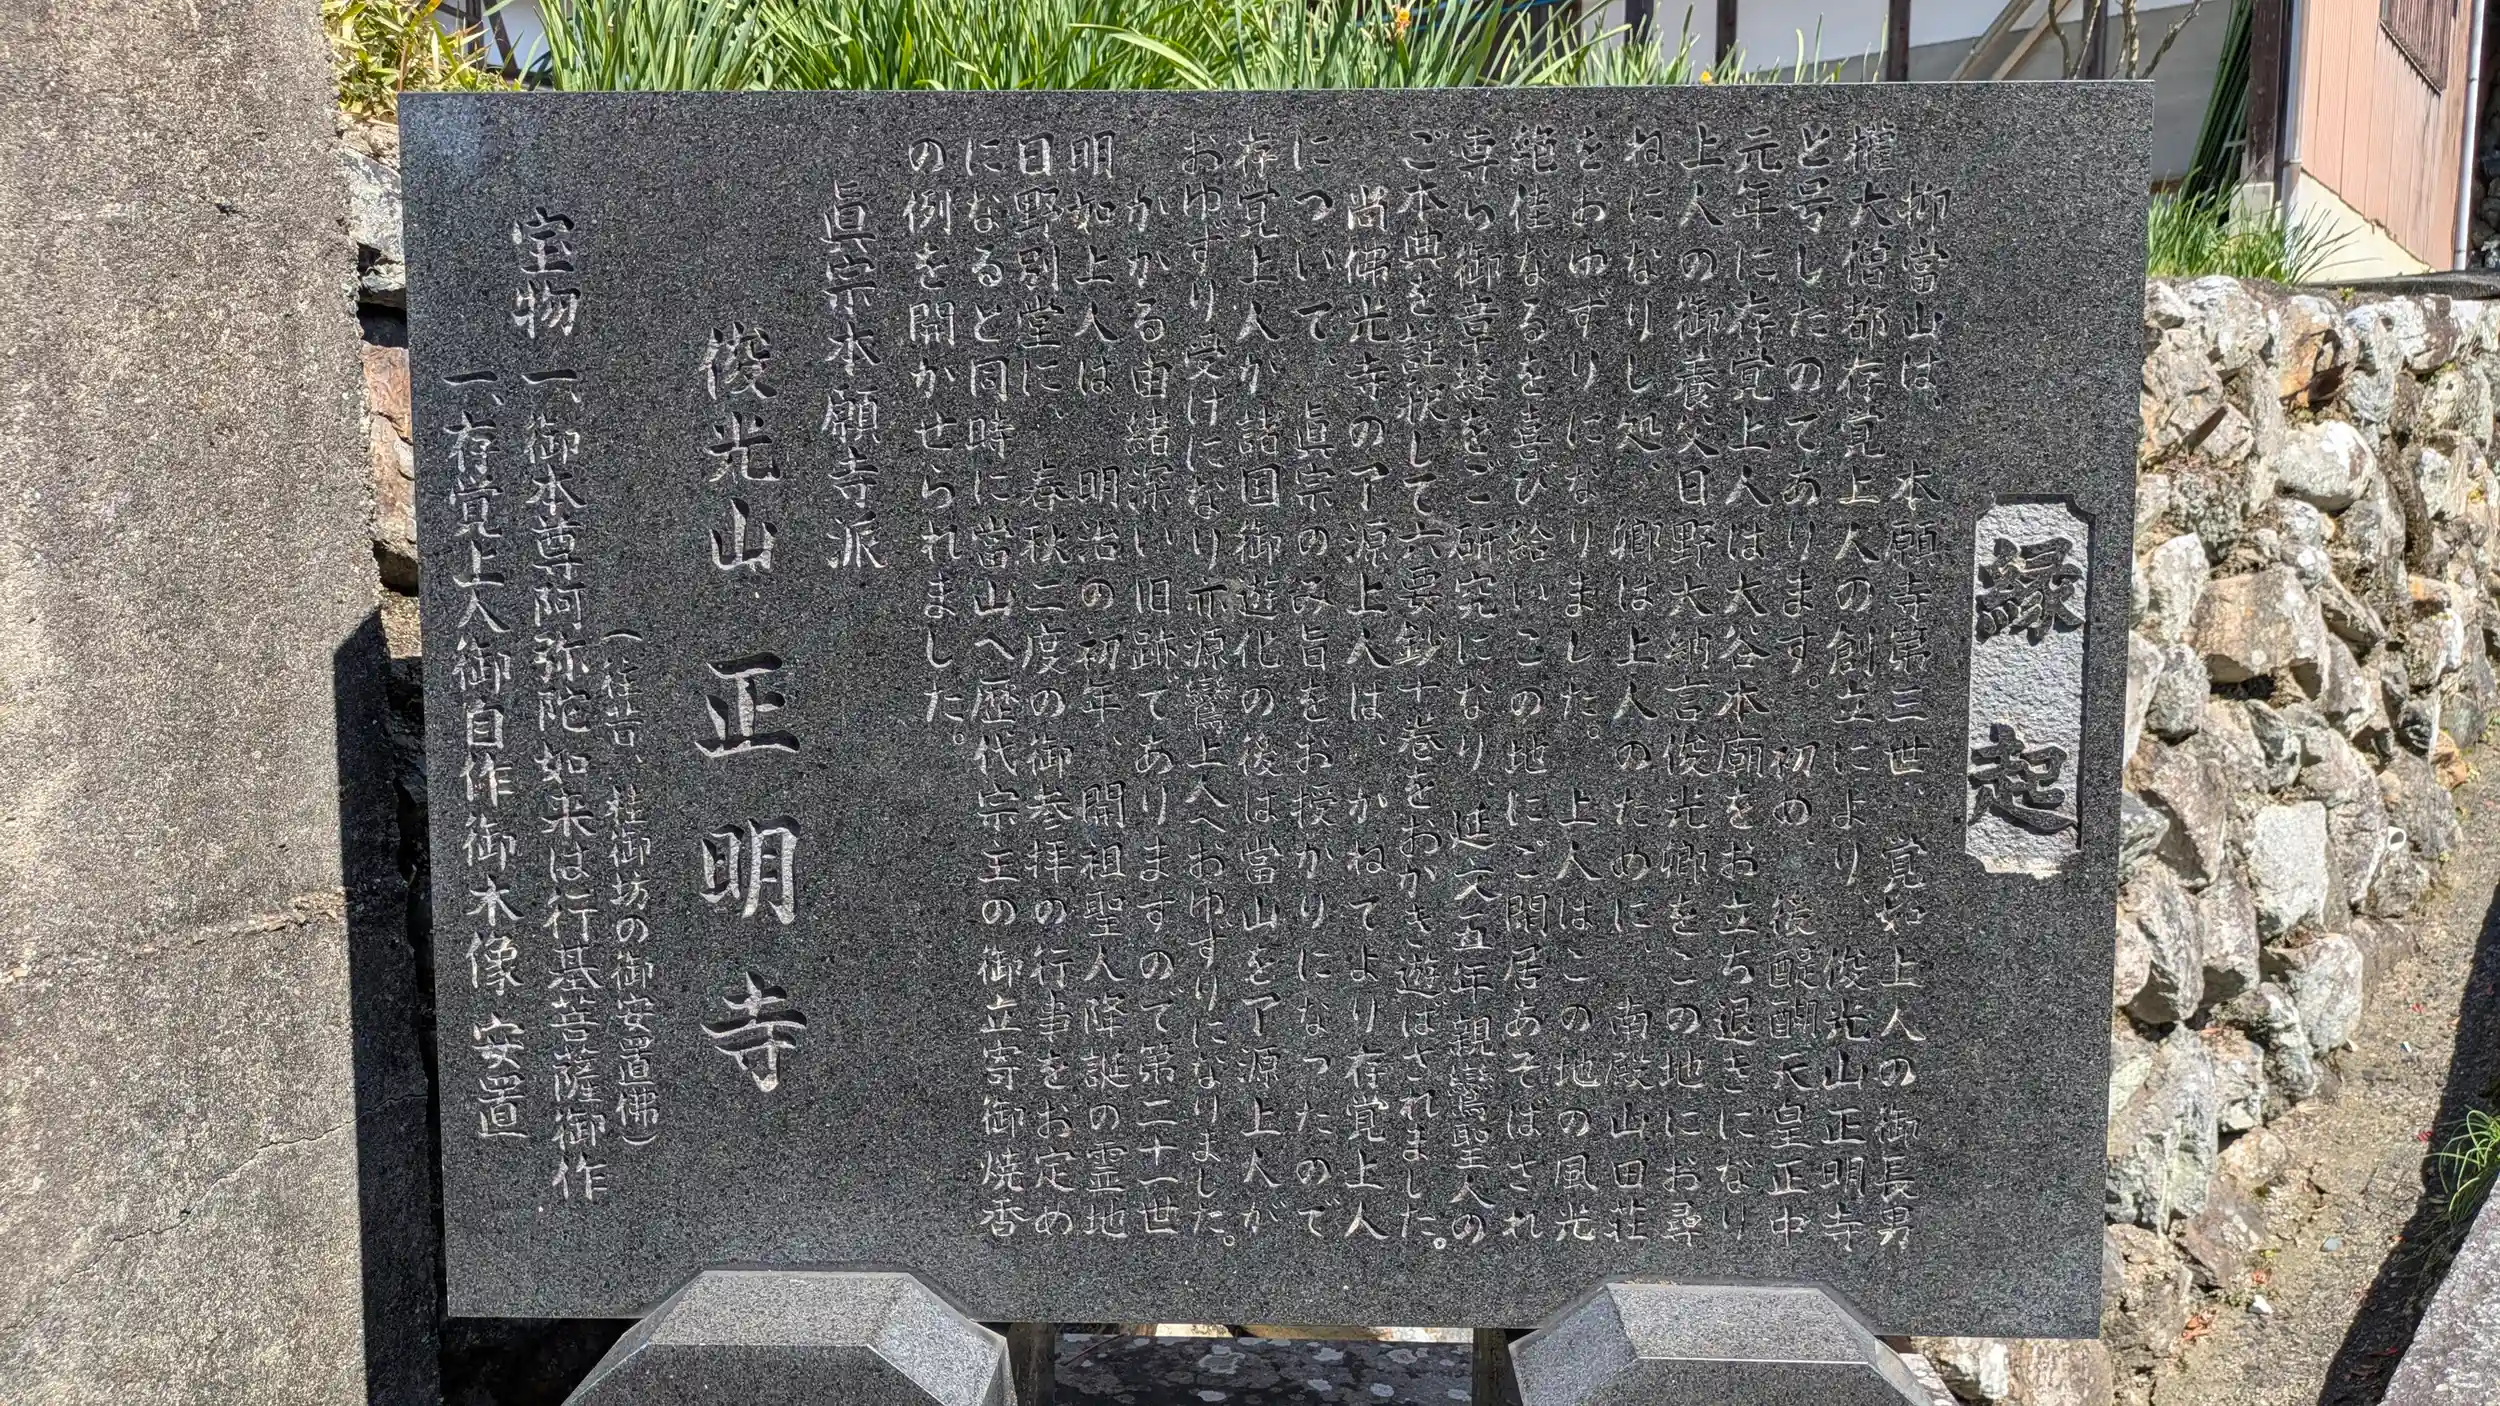 縁起
抑當山は、本願寺第三世、覚如上人の御長男
權大僧都存覚上人の創立により、俊光山正明寺
と号したのであります。初め、後醍醐天皇正中
元年に存覚上人は大谷本廟をお立ち退きになり
上人の御養父日野大納言俊光卿をこの地にお尋
ねになりし処、卿は上人のために、南殿山田荘
をおゆずりになりました。上人はこの地の風光
絶佳なるを喜び給いこの地にご閑居あそばされ
専ら御章経をご研究になり、延文五年親鸞聖人の
ご本典を註釈して六要鈔十巻をおかき遊ばされました。
尚佛光寺の了源上人は、かねてより存覚上人
について、眞宗のみ旨をお授かりになったので
存覚上人が諸国御遊化の後は當山を了源上人が
おゆずり受けになり亦源鸞上人へおゆずりになりました。
かかる由緒深い旧跡でありますので第二十一世
明如上人は、明治の初年、開祖聖人降誕の霊地
日野別堂に、春秋二度の御参拝の行事をお定め
になると同時に當山へ歴代宗主の御立寄御焼香
の例を開かせられました。
眞宗本願寺派
俊光山 正明寺
（往昔、桂御坊の御安置佛）
宝物 一、御本尊阿弥陀如来は行基菩薩御作
一、存覚上人御自作御木像 安置